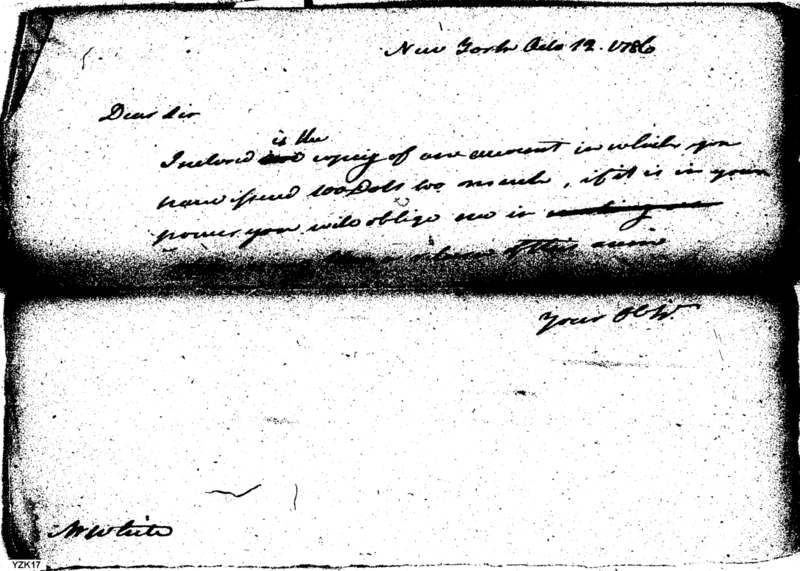 New York Octo 12. 1786
Dear Sir
is the
Inclosed copy of our account in which you
have paid 100 Dolls too much, if it is in your
power you will oblige me in making me
the return of this sum
Your Obt.
Mr White
YZK17